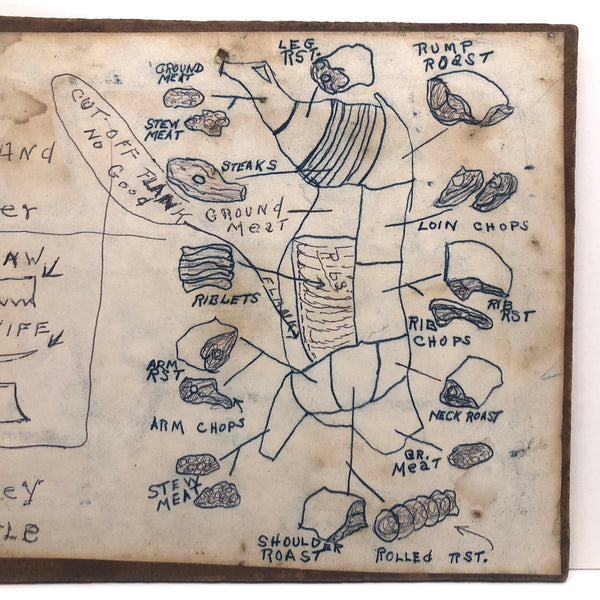 AND
er
AW
IFE
ey
TLE
CUT-OFF FLANK
NO Good
GROUND
MEAT
STEW
MEAT
STEAKS
GROUND
MEAT
RIBLETS
RIBS
FLANK
ARM
RST
ARM CHOPS
STEW
MEAT
LEG
RST.
RUMP
ROAST
LOIN CHOPS
RIB
RST
RIB
CHOPS
NECK ROAST
GR.
MEAT
SHOULDER
ROAST
ROLLED RST.